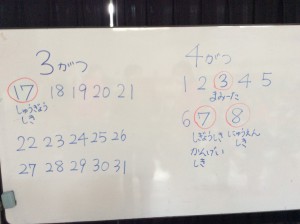 3がつ
17 18 19 20 21
しゅうぎょう
しき
22 23 24 25 26
27 28 29 30 31
4がつ
1 2 3 4 5
6 7 8
しぎょうしき
かんげい
しき
にゅうえん
しき